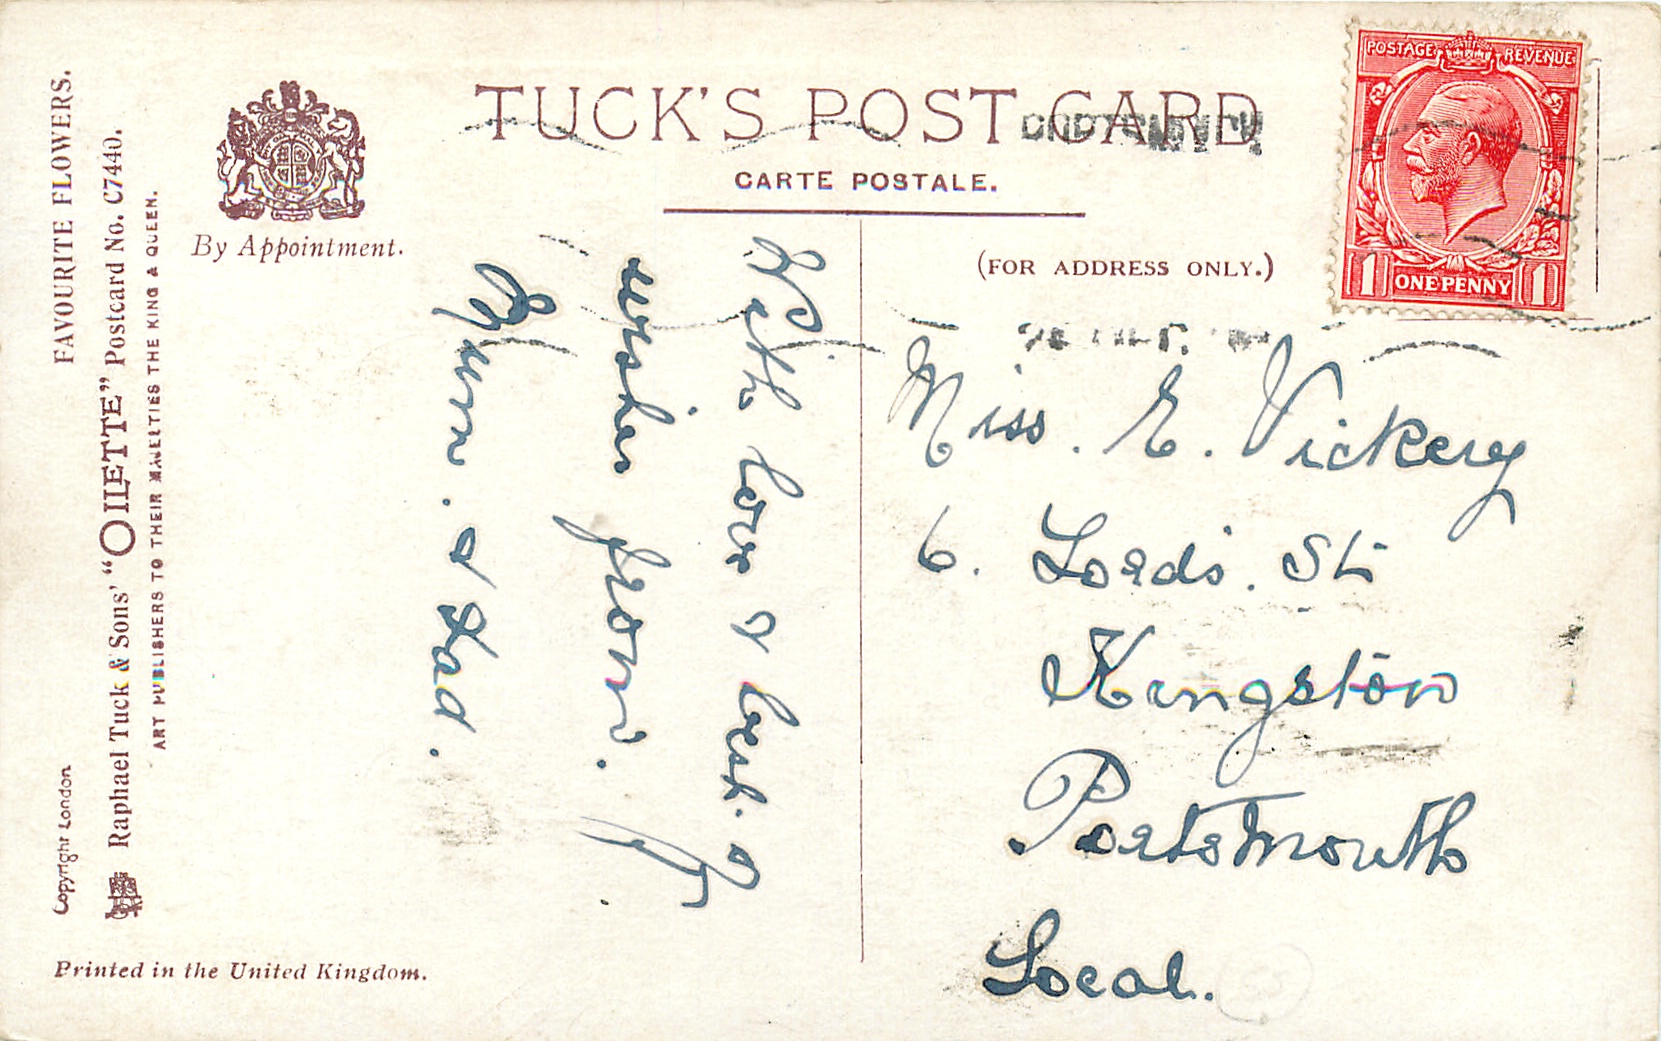 TUCK'S POST CARD
CARTE POSTALE.
(FOR ADDRESS ONLY.)
By Appointment.
POSTAGE REVENUE
1 ONE PENNY 1
FAVOURITE FLOWERS.
Raphael Tuck & Sons' "OILETTE" Postcard No. C7440.
ART PUBLISHERS TO THEIR MAJESTIES THE KING & QUEEN.
Copyright London
Printed in the United Kingdom.
With love & best.
wishes from.
Mum. & Dad.
Miss. E. Vickery
6. Lords. St
Kingston
Portsmouth
Local.